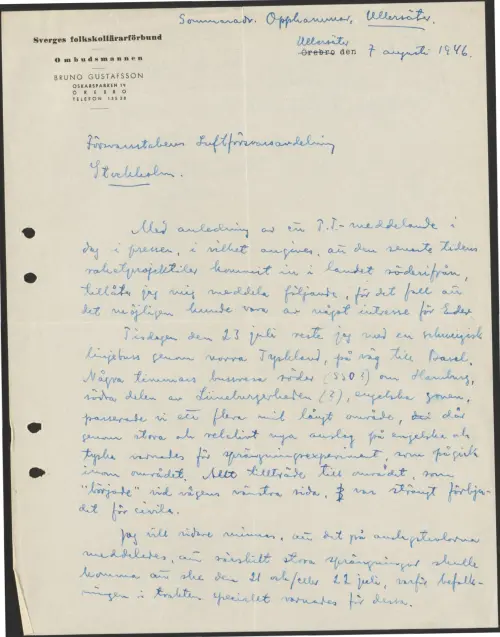 Sommaradr. Opphammar, Ullersäter.
Sveriges folkskollärarförbund
Ombudsmannen
BRUNO GUSTAFSSON
OSKARSPARKEN 19
ÖREBRO
TELEFON 145 28
Ullersäter
Örebro den 7 augusti 1946.
Försvarsstabens Luftförsvarsavdelning
Stockholm.
Med anledning av en T.T-meddelande i
dag i pressen, i vilket angives, att den senaste tidens
raketprojektiler kommit in i landet söderifrån,
tillåter jag mig meddela följande, för det fall att
det möjligen kunde vara av något intresse för Eder
Tisdagen den 23 juli reste jag med en schweizisk
linjebuss genom norra Tyskland, på väg till Basel.
Några timmars bussresa söder om Hamburg,
södra delen av Lüneburgerheden (?), engelska zonen,
passerade vi ett flera mil långt område, där
genom stora och relativt nya anslag på engelska och
tyska varnades för sprängningsexperiment, som pågick
inom området. Allt tillträde till området, som
"började" vid vägens vänstra sida, var strängt förbju-
det för civila.
Jag vill vidare minnas, att det på anslagstavlorna
meddelades, att särskilt stora sprängningar skulle
komma att ske den 21 och/eller 22 juli, varför befolk-
ningen i trakten speciellt varnades för dessa.